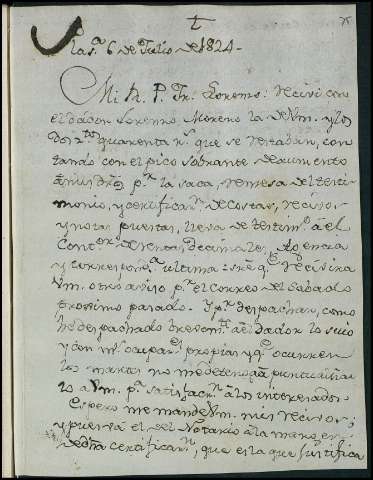 t
75
Plas.ª 6 de Julio de 1824-
Mi R. P. Fr. Lorenzo: Recivi con
el dador Lorenzo Moreno la de Vm. y los
dos quarenta r.s que se restaban, con
tando con el pico sobrante de aumento
p.r la saca, remesa del testi
monio, y certificac.n de costas, recivos
y notas puestas, lleva de testim.o á el
Cont.or de rentas decimales, Agencia
y correspond.ª ultima: q.e recivira
Vm. otro aviso p.r el correo del Sabado
proximo pasado. Y p.r despachar, como
he despachado brevem.te á el dador lo suio
y con m.s ocupac.s propias y q.e ocurren
los martes no me detengo á puntualizar
lo á Vm. p.ª satisfacc.n á los interesados.
Espero me mande Vm. mis recivos;
y puesva el del Notario á la margen
de dha certificac.n, que es la que justifica